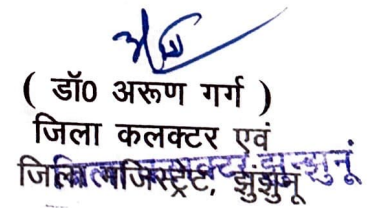 ( डॉ0 अरूण गर्ग )
जिला कलक्टर एवं
जिला मजिस्ट्रेट, झुझुनू